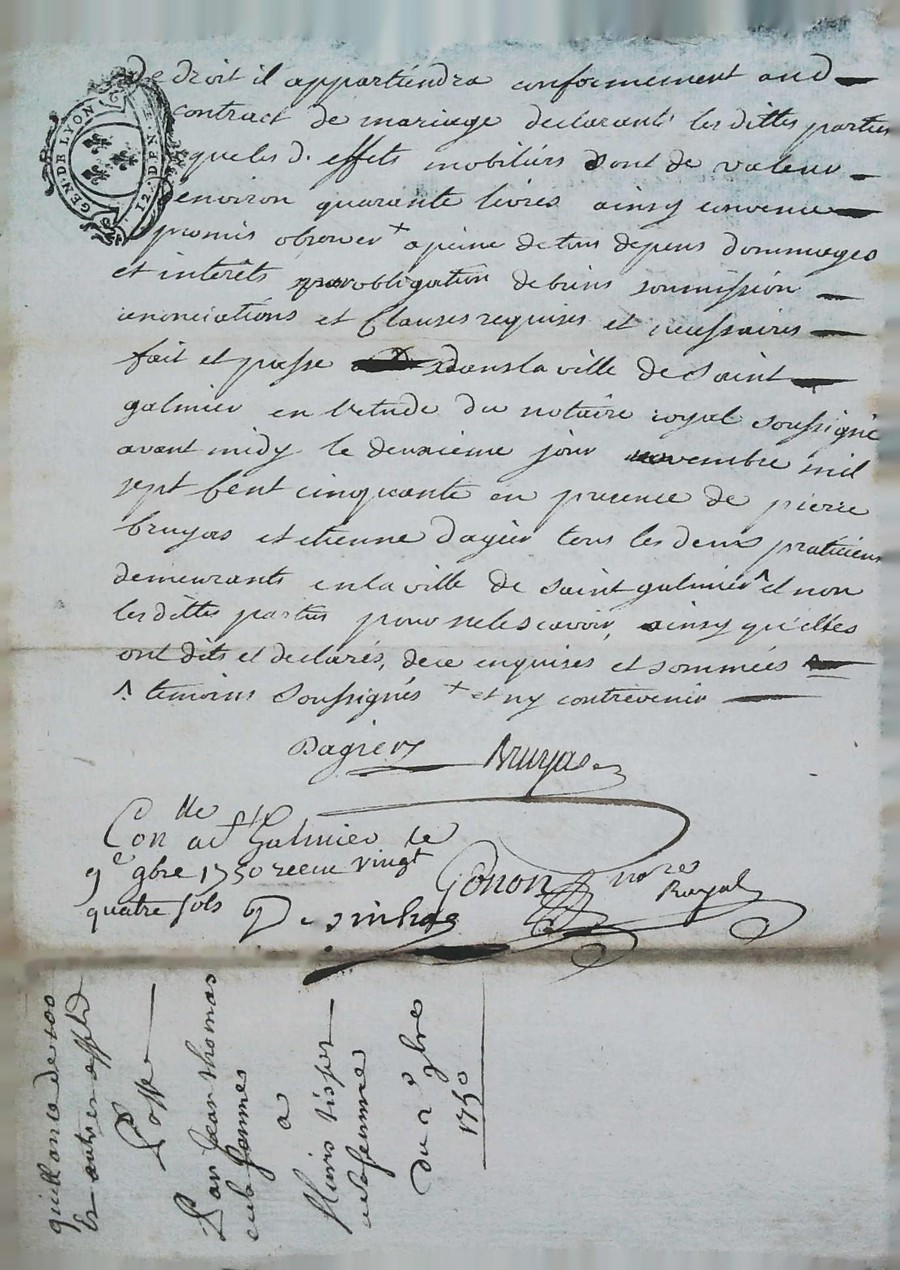 GEN. DE LYON
12. DEN.
de droit il appartiendra conformement aud
contract de mariage declarant les dittes parties
que les d. effets mobiliers sont de valeur
environ quarante livres ainsy convenu
promis observer + a peine de tous depens dommages
et interêts par obligation de biens soumission
renonciations et Clauses requises et necessaires
fait et passe dans la ville de Saint
galmier en l'etude du notaire royal soussigné
avant midy le deuxieme jour novembre mil
sept cent cinquante en presence de pierre
bruyas et etienne dagier tous les deux praticiens
demeurants en la ville de saint galmier ^ et non
les dittes parties pour ne le scavoir, ainsy qu'elles
ont dits et declarés, de ce enquises et sommées
^ temoins Soussignés + et ny contrevenir
Dagier Bruyas
Con lle a St Galmier le
9e 9bre 1750 receu vingt
quatre sols
Gonon no re
Royal
quittance de 100
et autres effets
Posse
Par Jean thomas
et sa femme
a
et sa femme
Du 2 9bre
1750